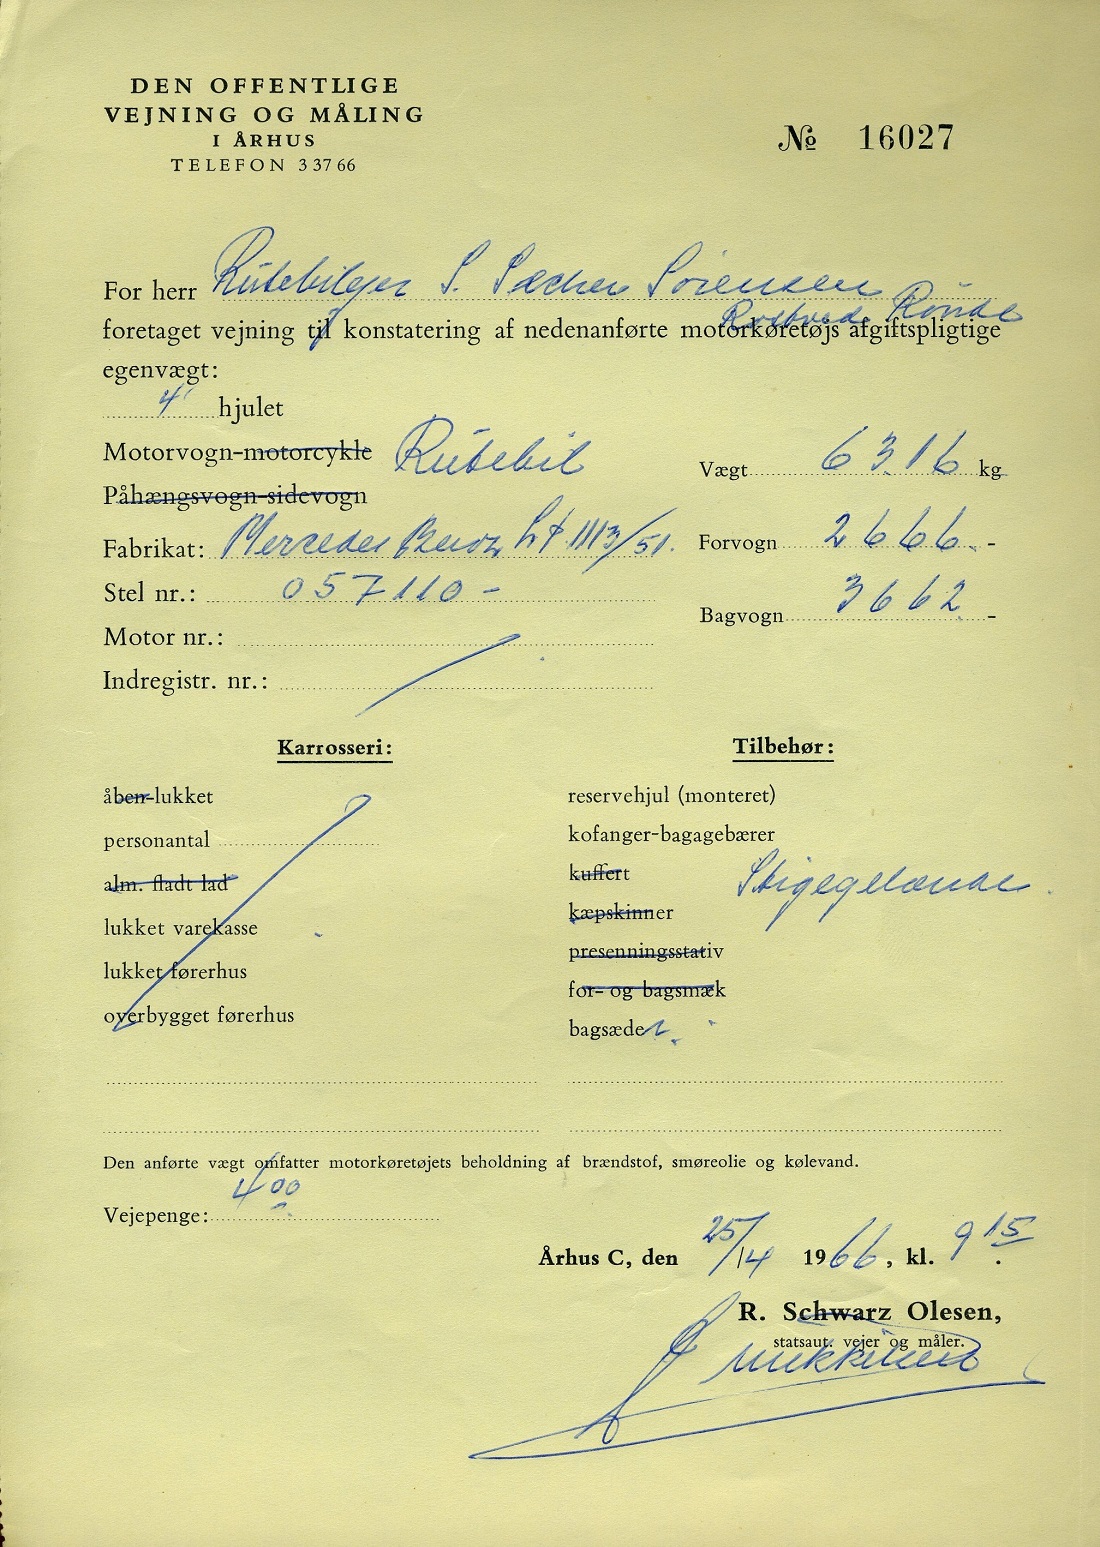 DEN OFFENTLIGE
VEJNING OG MÅLING
I ÅRHUS
TELEFON 3 37 66
№ 16027
For herr Rutebilejer S. Sørensen
Rønde
foretaget vejning til konstatering af nedenanførte motorkøretøjs afgiftspligtige
egenvægt:
4 hjulet
Motorvogn-motorcykle Rutebil
Påhængsvogn-sidevogn
Vægt 6316 kg
Fabrikat: Mercedes Benz 1113/51.
Forvogn 2666 -
Stel nr.: 057110 -
Bagvogn 3662 -
Motor nr.:
Indregistr. nr.:
Karrosseri:
åben-lukket
personantal
alm. fladt lad
lukket varekasse
lukket førerhus
overbygget førerhus
Tilbehør:
reservehjul (monteret)
kofanger-bagagebærer
kuffert
kæpskinner
presenningsstativ
for- og bagsmæk
bagsæder
Den anførte vægt omfatter motorkøretøjets beholdning af brændstof, smøreolie og kølevand.
Vejepenge: 4 00
Århus C, den 25/4 1966, kl. 9 15.
R. Schwarz Olesen,
statsaut. vejer og måler.